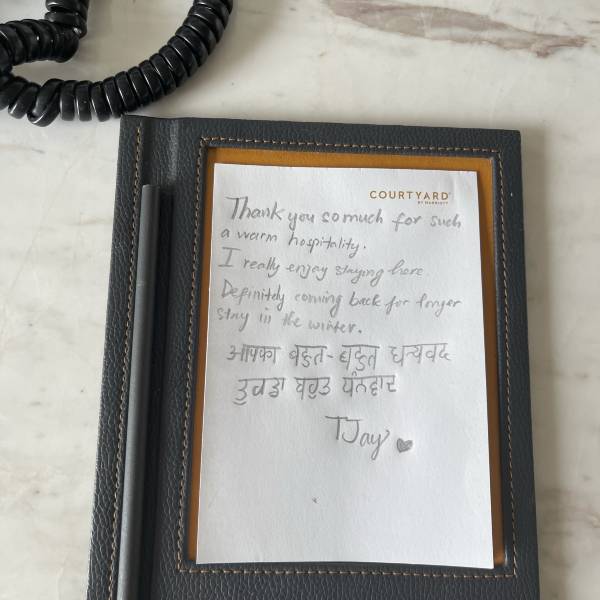 COURTYARD
BY MARRIOTT
Thank you so much for such
a warm hospitality.
I really enjoy staying here.
Definitely coming back for longer
stay in the winter.
आपका बहुत-बहुत धन्यवद
ਤੁਵਡਾ ਬਹੁਤ ਧੰਨਵਾਦ
TJay